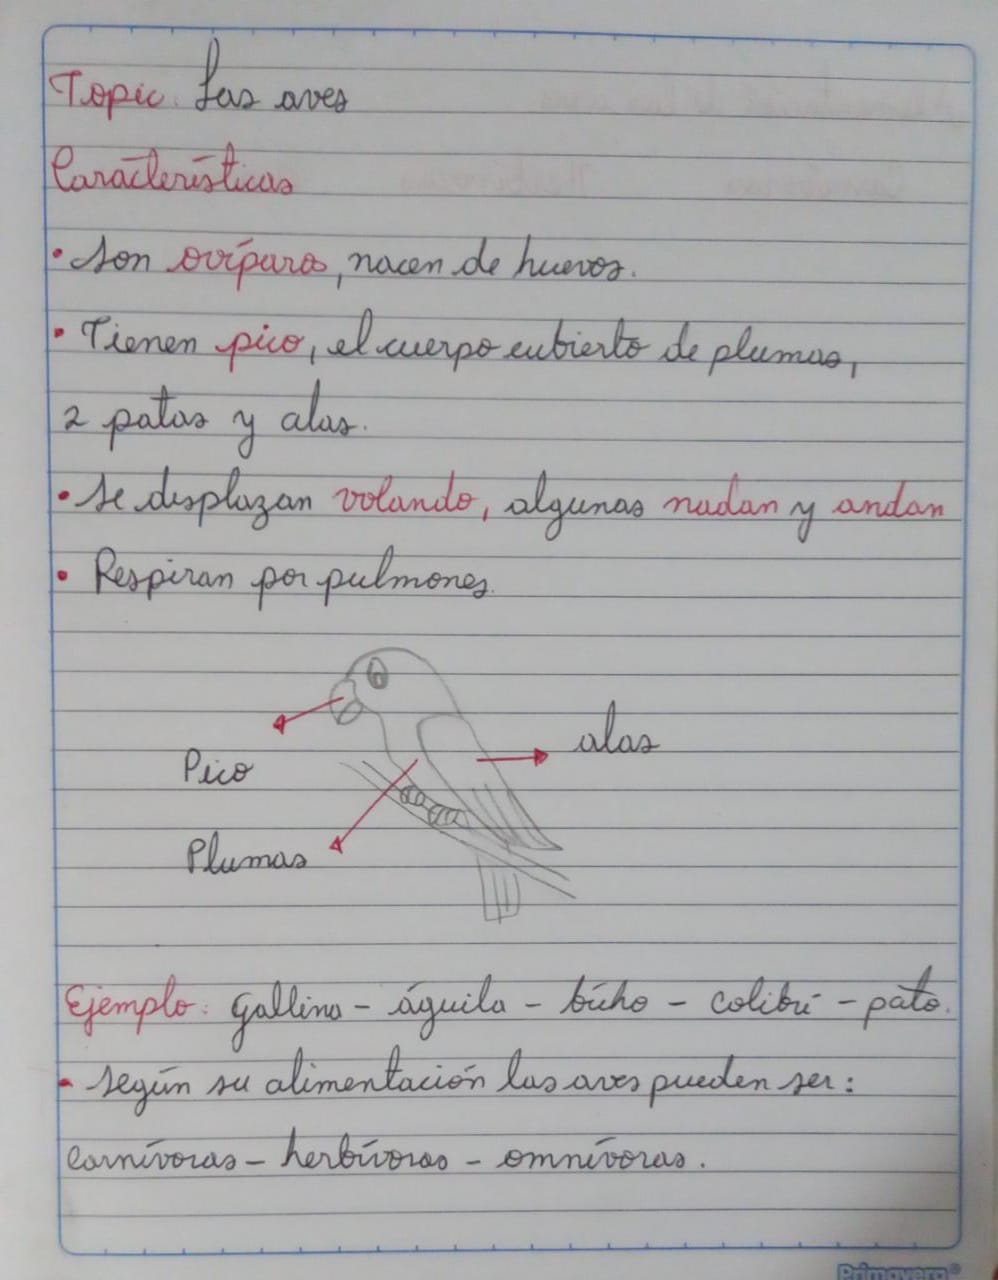 Topic: Las aves
Características
• Son ovíparos, nacen de huevos.
• Tienen pico, el cuerpo cubierto de plumas,
2 patas y alas.
• Se desplazan volando, algunas nadan y andan
• Respiran por pulmones.
alas
Pico
Plumas
Ejemplo: Gallina - águila - búho - colibrí - pato.
• Según su alimentación las aves pueden ser:
Carnívoras - herbívoras - omnívoras.
Primavera®